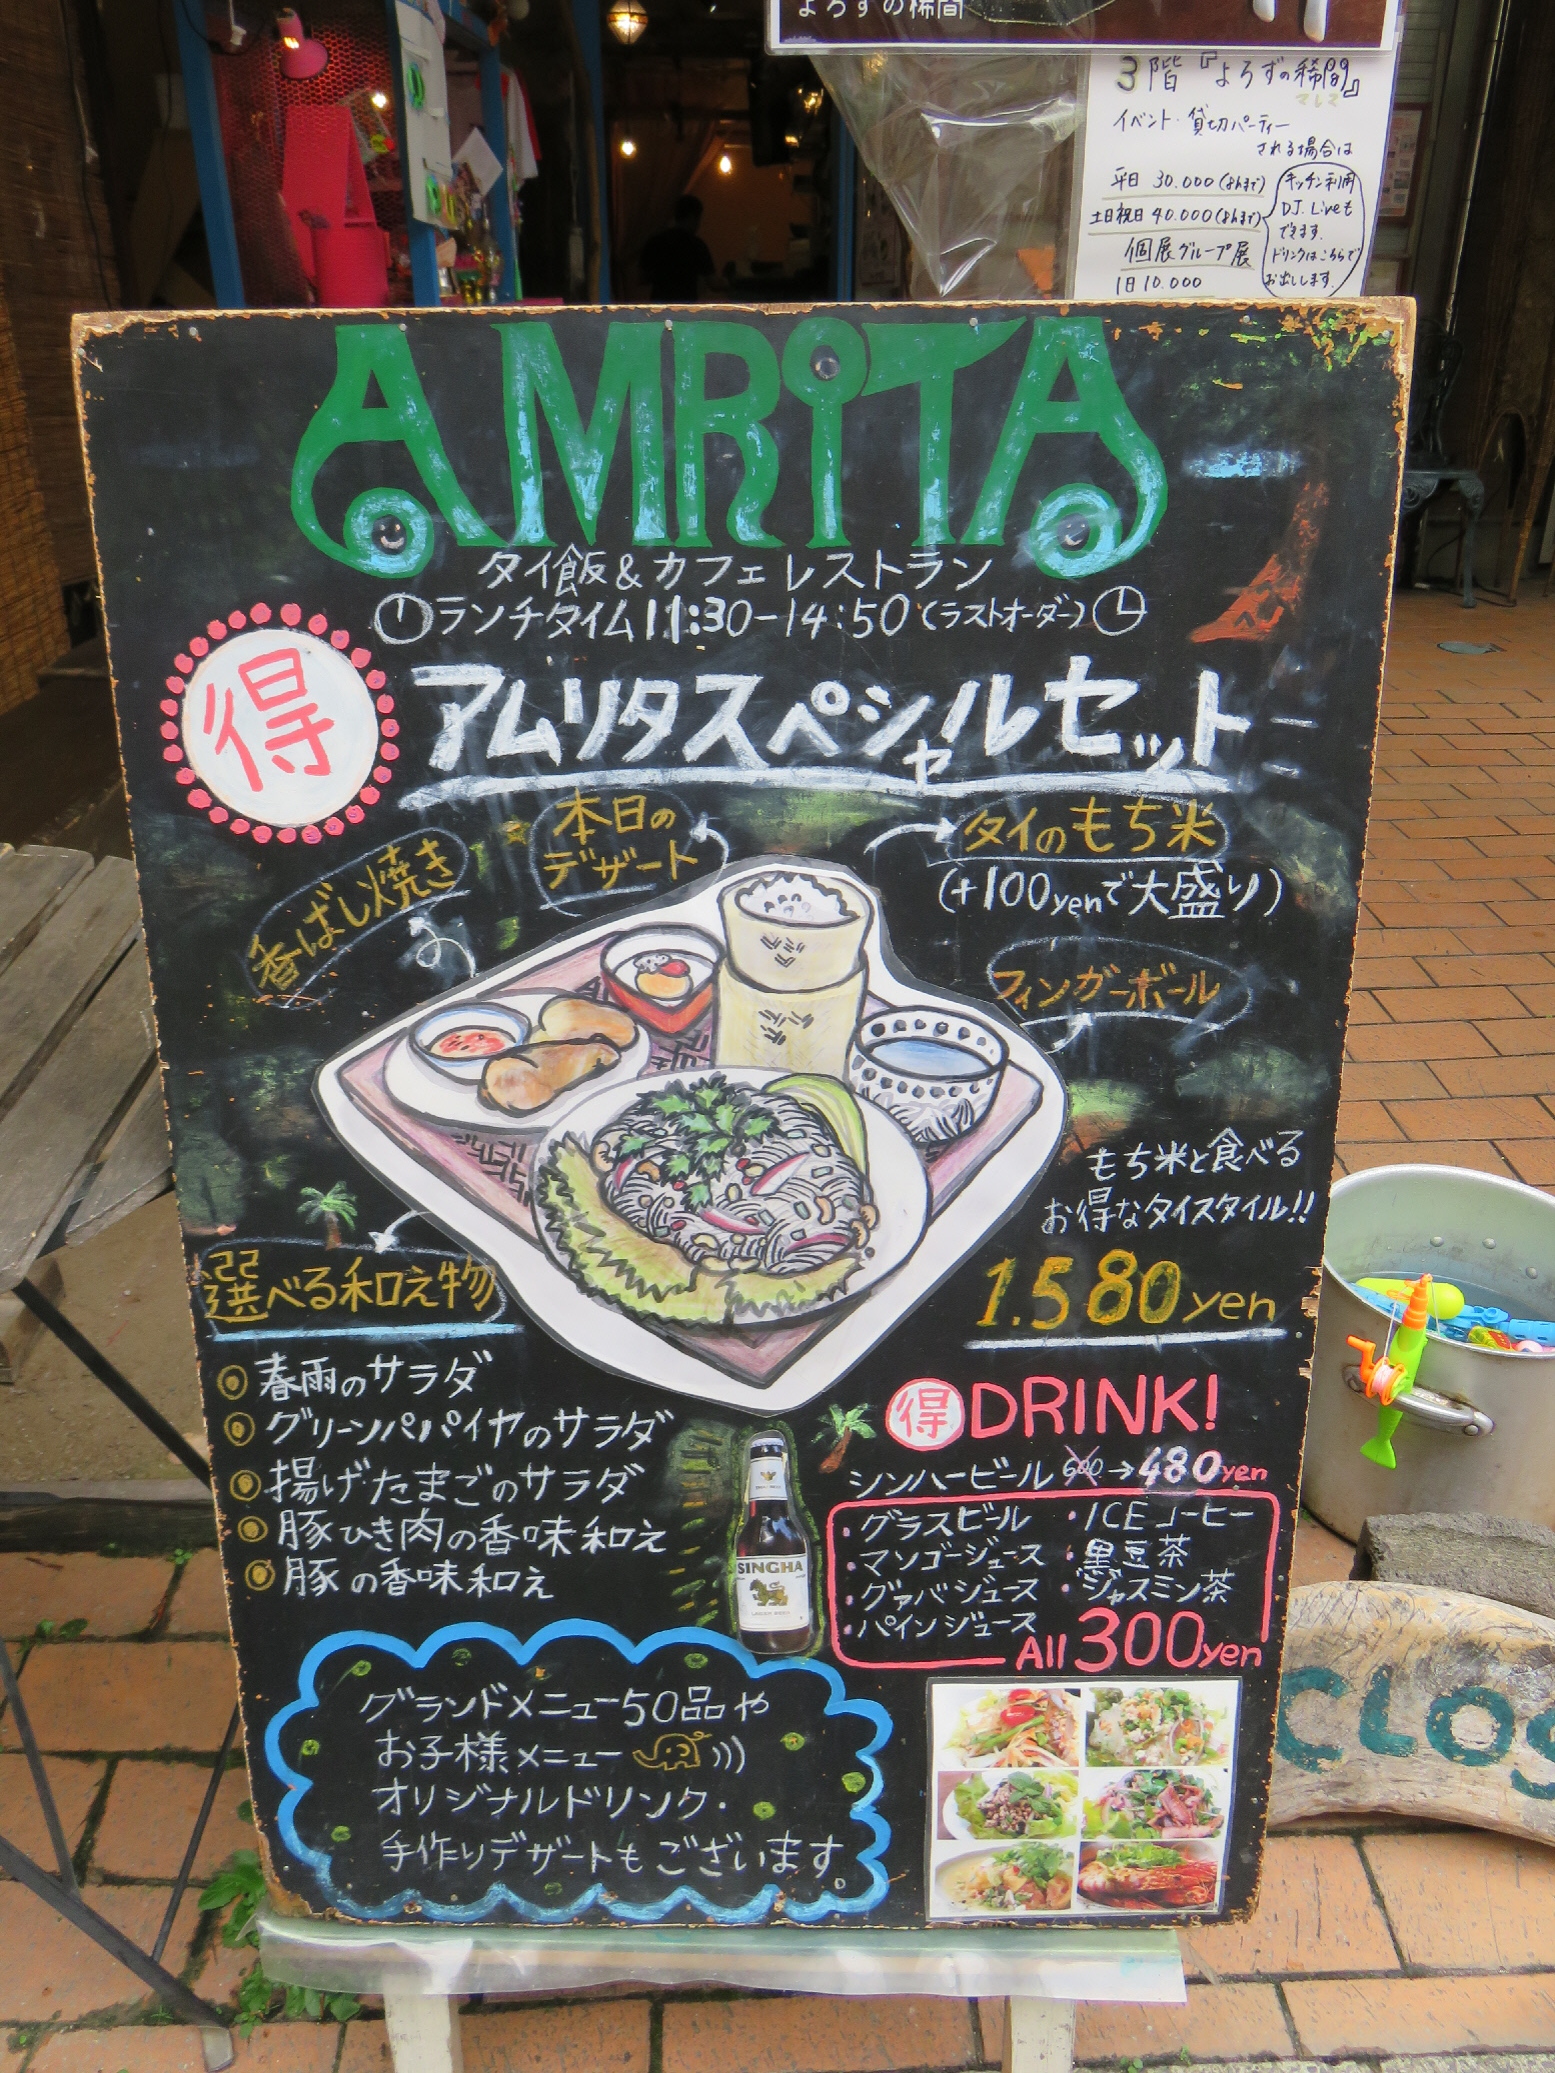 よろずの稀間
3階『よろずの稀間』
マレマ
イベント・貸切パーティー
される場合は
平日 30.000(8hまで)
土日祝日 40.000(8hまで)
個展グループ展
1日 10.000
キッチン利用
DJ. Liveも
できます.
ドリンクはこちらで
お出しします.
AMRiTA
タイ飯&カフェレストラン
ランチタイム11:30-14:50(ラストオーダー)
得
アムリタスペシャルセット
本日の
デザート
タイのもち米
(+100yenで大盛り)
香ばし焼き
フィンガーボール
もち米と食べる
お得なタイスタイル!!
1.580yen
選べる和え物
春雨のサラダ
グリーンパパイヤのサラダ
揚げたまごのサラダ
豚ひき肉の香味和え
豚の香味和え
得 DRINK!
シンハービール 600→480yen
・グラスビール ・ICEコーヒー
・マンゴージュース ・黒豆茶
・グァバジュース ・ジャスミン茶
・パインジュース
All 300yen
SINGHA
グランドメニュー50品や
お子様メニュー
オリジナルドリンク・
手作りデザートもございます。
CLOS